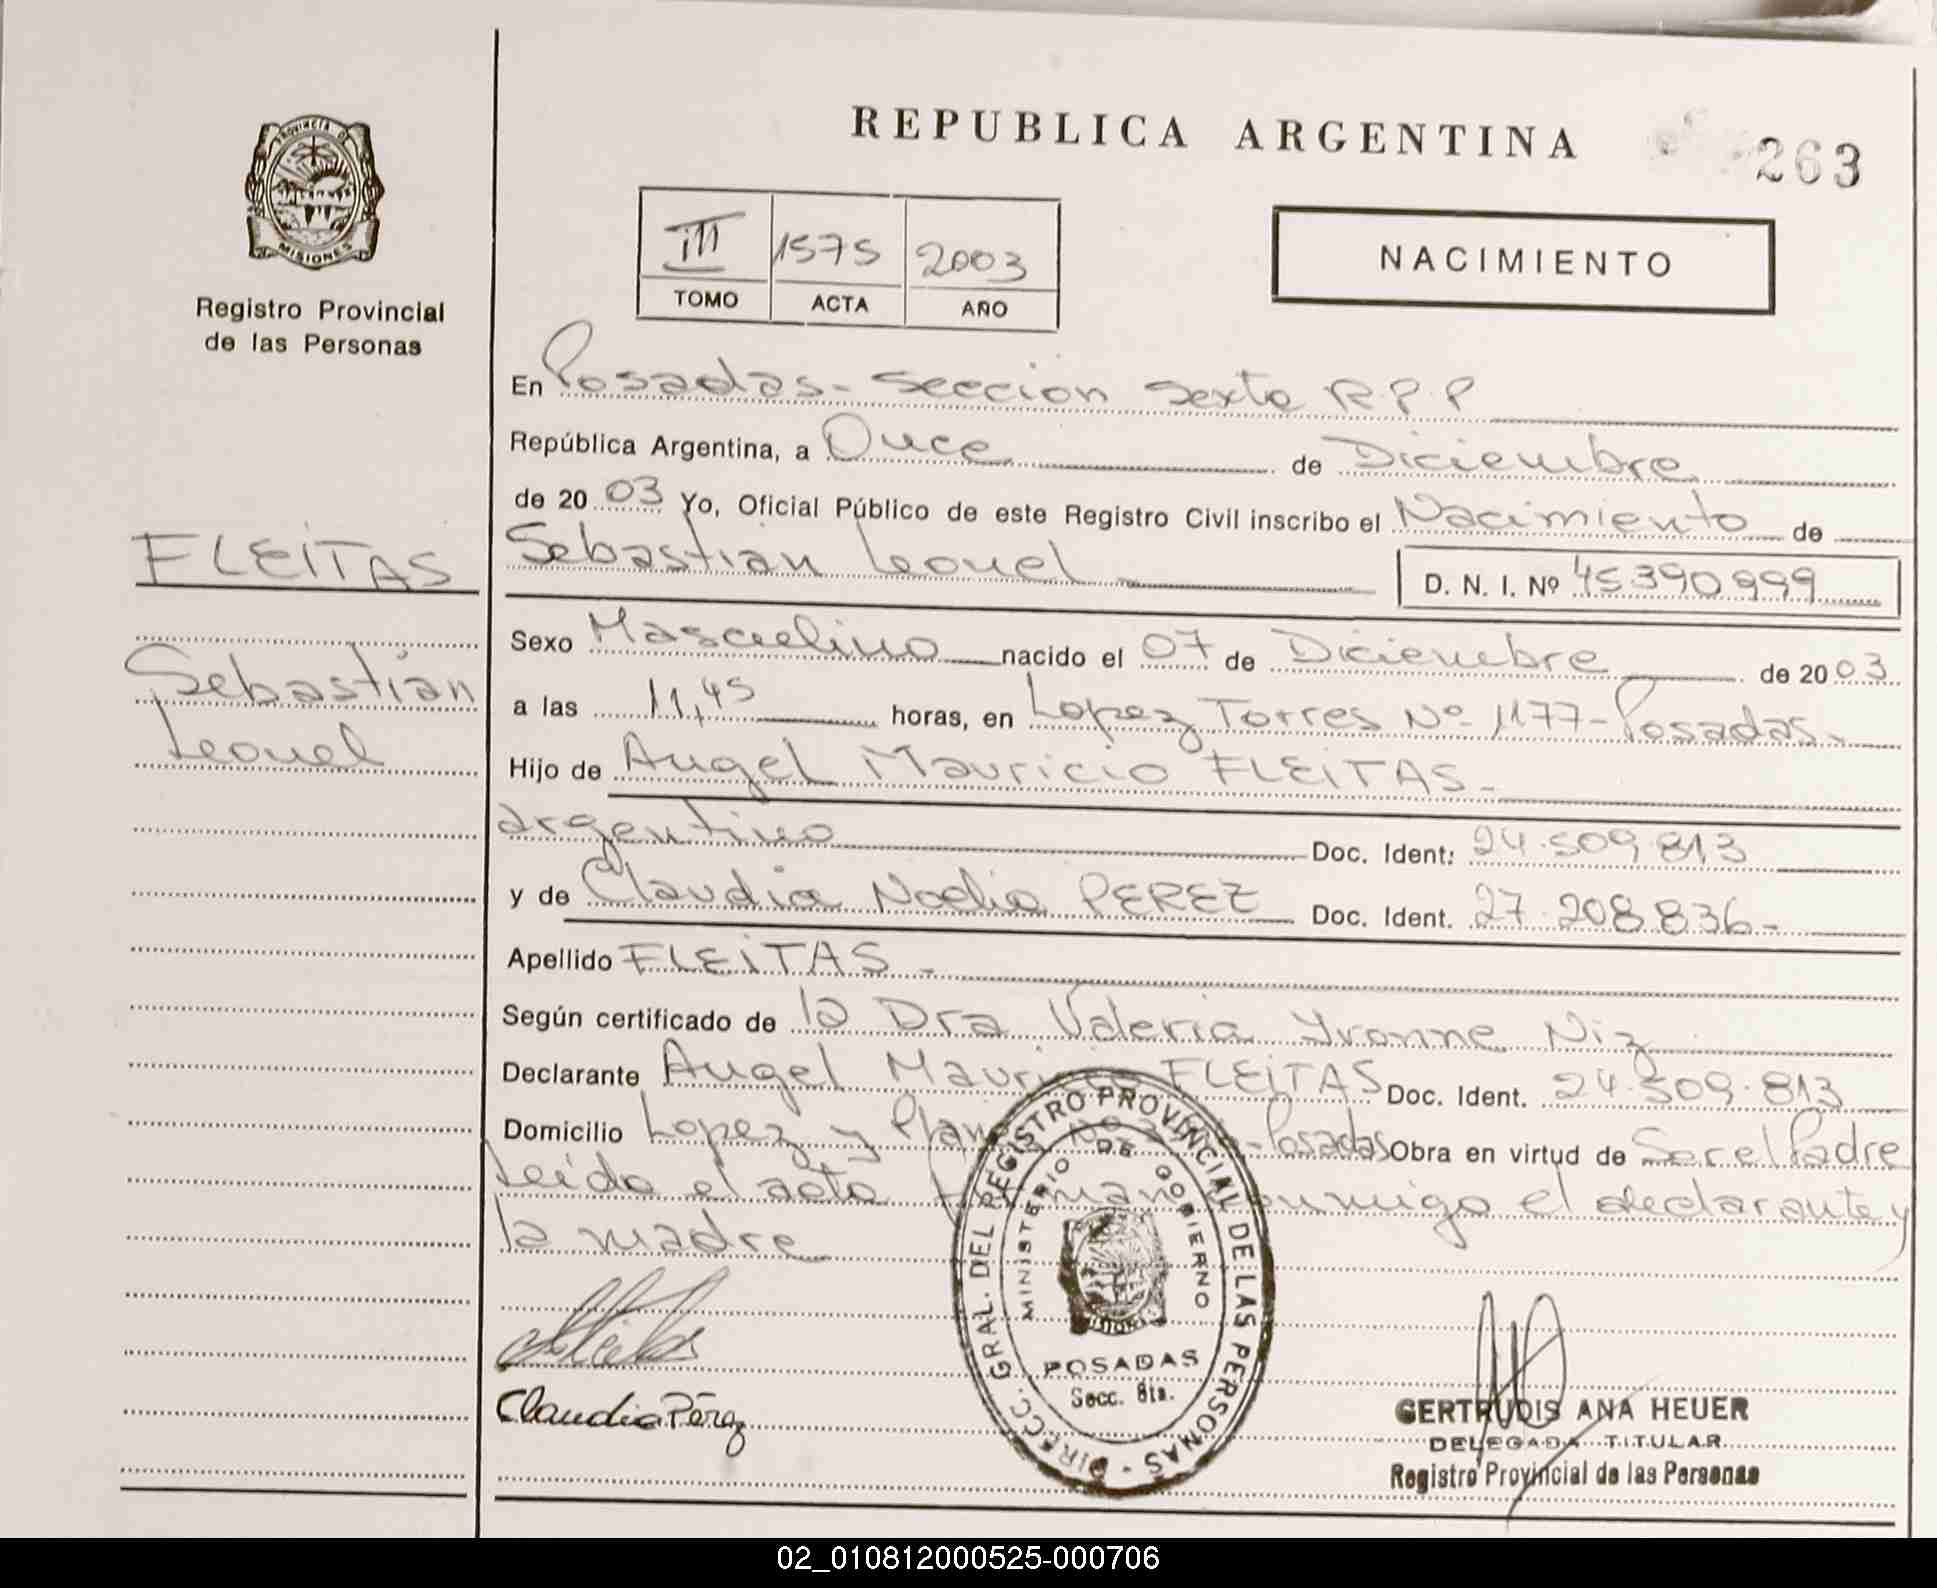 REPUBLICA ARGENTINA
263
PROVINCIA DE
MISIONES
Registro Provincial
de las Personas
III 1575 2003
TOMO ACTA AÑO
NACIMIENTO
En Posadas - Seccion Sexta R.P.P
República Argentina, a Once de Diciembre
de 20 03 Yo, Oficial Público de este Registro Civil inscribo el Nacimiento de
FLEITAS
Sebastian Leonel D. N. I. Nº 45390999
Sexo Masculino nacido el 07 de Diciembre de 20 03
Sebastian
Leonel
a las 11,45 horas, en Lopez Torres Nº 1177 - Posadas -
Hijo de Angel Mauricio FLEITAS -
argentino Doc. Ident: 24.509.813
y de Claudia Noelia PEREZ Doc. Ident. 27.208.836 -
Apellido FLEITAS -
Según certificado de la Dra Valeria Yvonne Niz
Declarante Angel Mauricio FLEITAS Doc. Ident. 24.509.813
Domicilio Lopez y Planes Nº - Posadas Obra en virtud de Ser el Padre
Leido el acta firman conmigo el declarante y
la madre
Claudia Pérez
DIRECC. GRAL. DEL REGISTRO PROVINCIAL DE LAS PERSONAS -
MINISTERIO DE GOBIERNO
POSADAS
Secc. 6ta.
GERTRUDIS ANA HEUER
DELEGADA TITULAR
Registro Provincial de las Personas
02_010812000525-000706